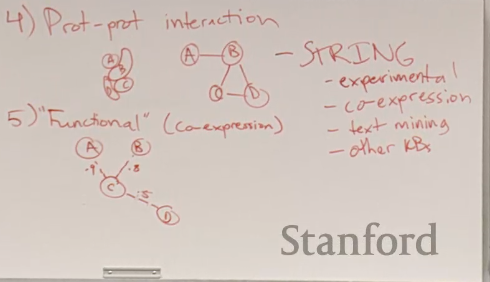 4) Prot-prot interaction
A
B
C
D
A
B
C
D
- STRING
- experimental
- co-expression
- text mining
- other KBs
5) "Functional" (co-expression)
A
B
.9
.8
C
.5
D
Stanford